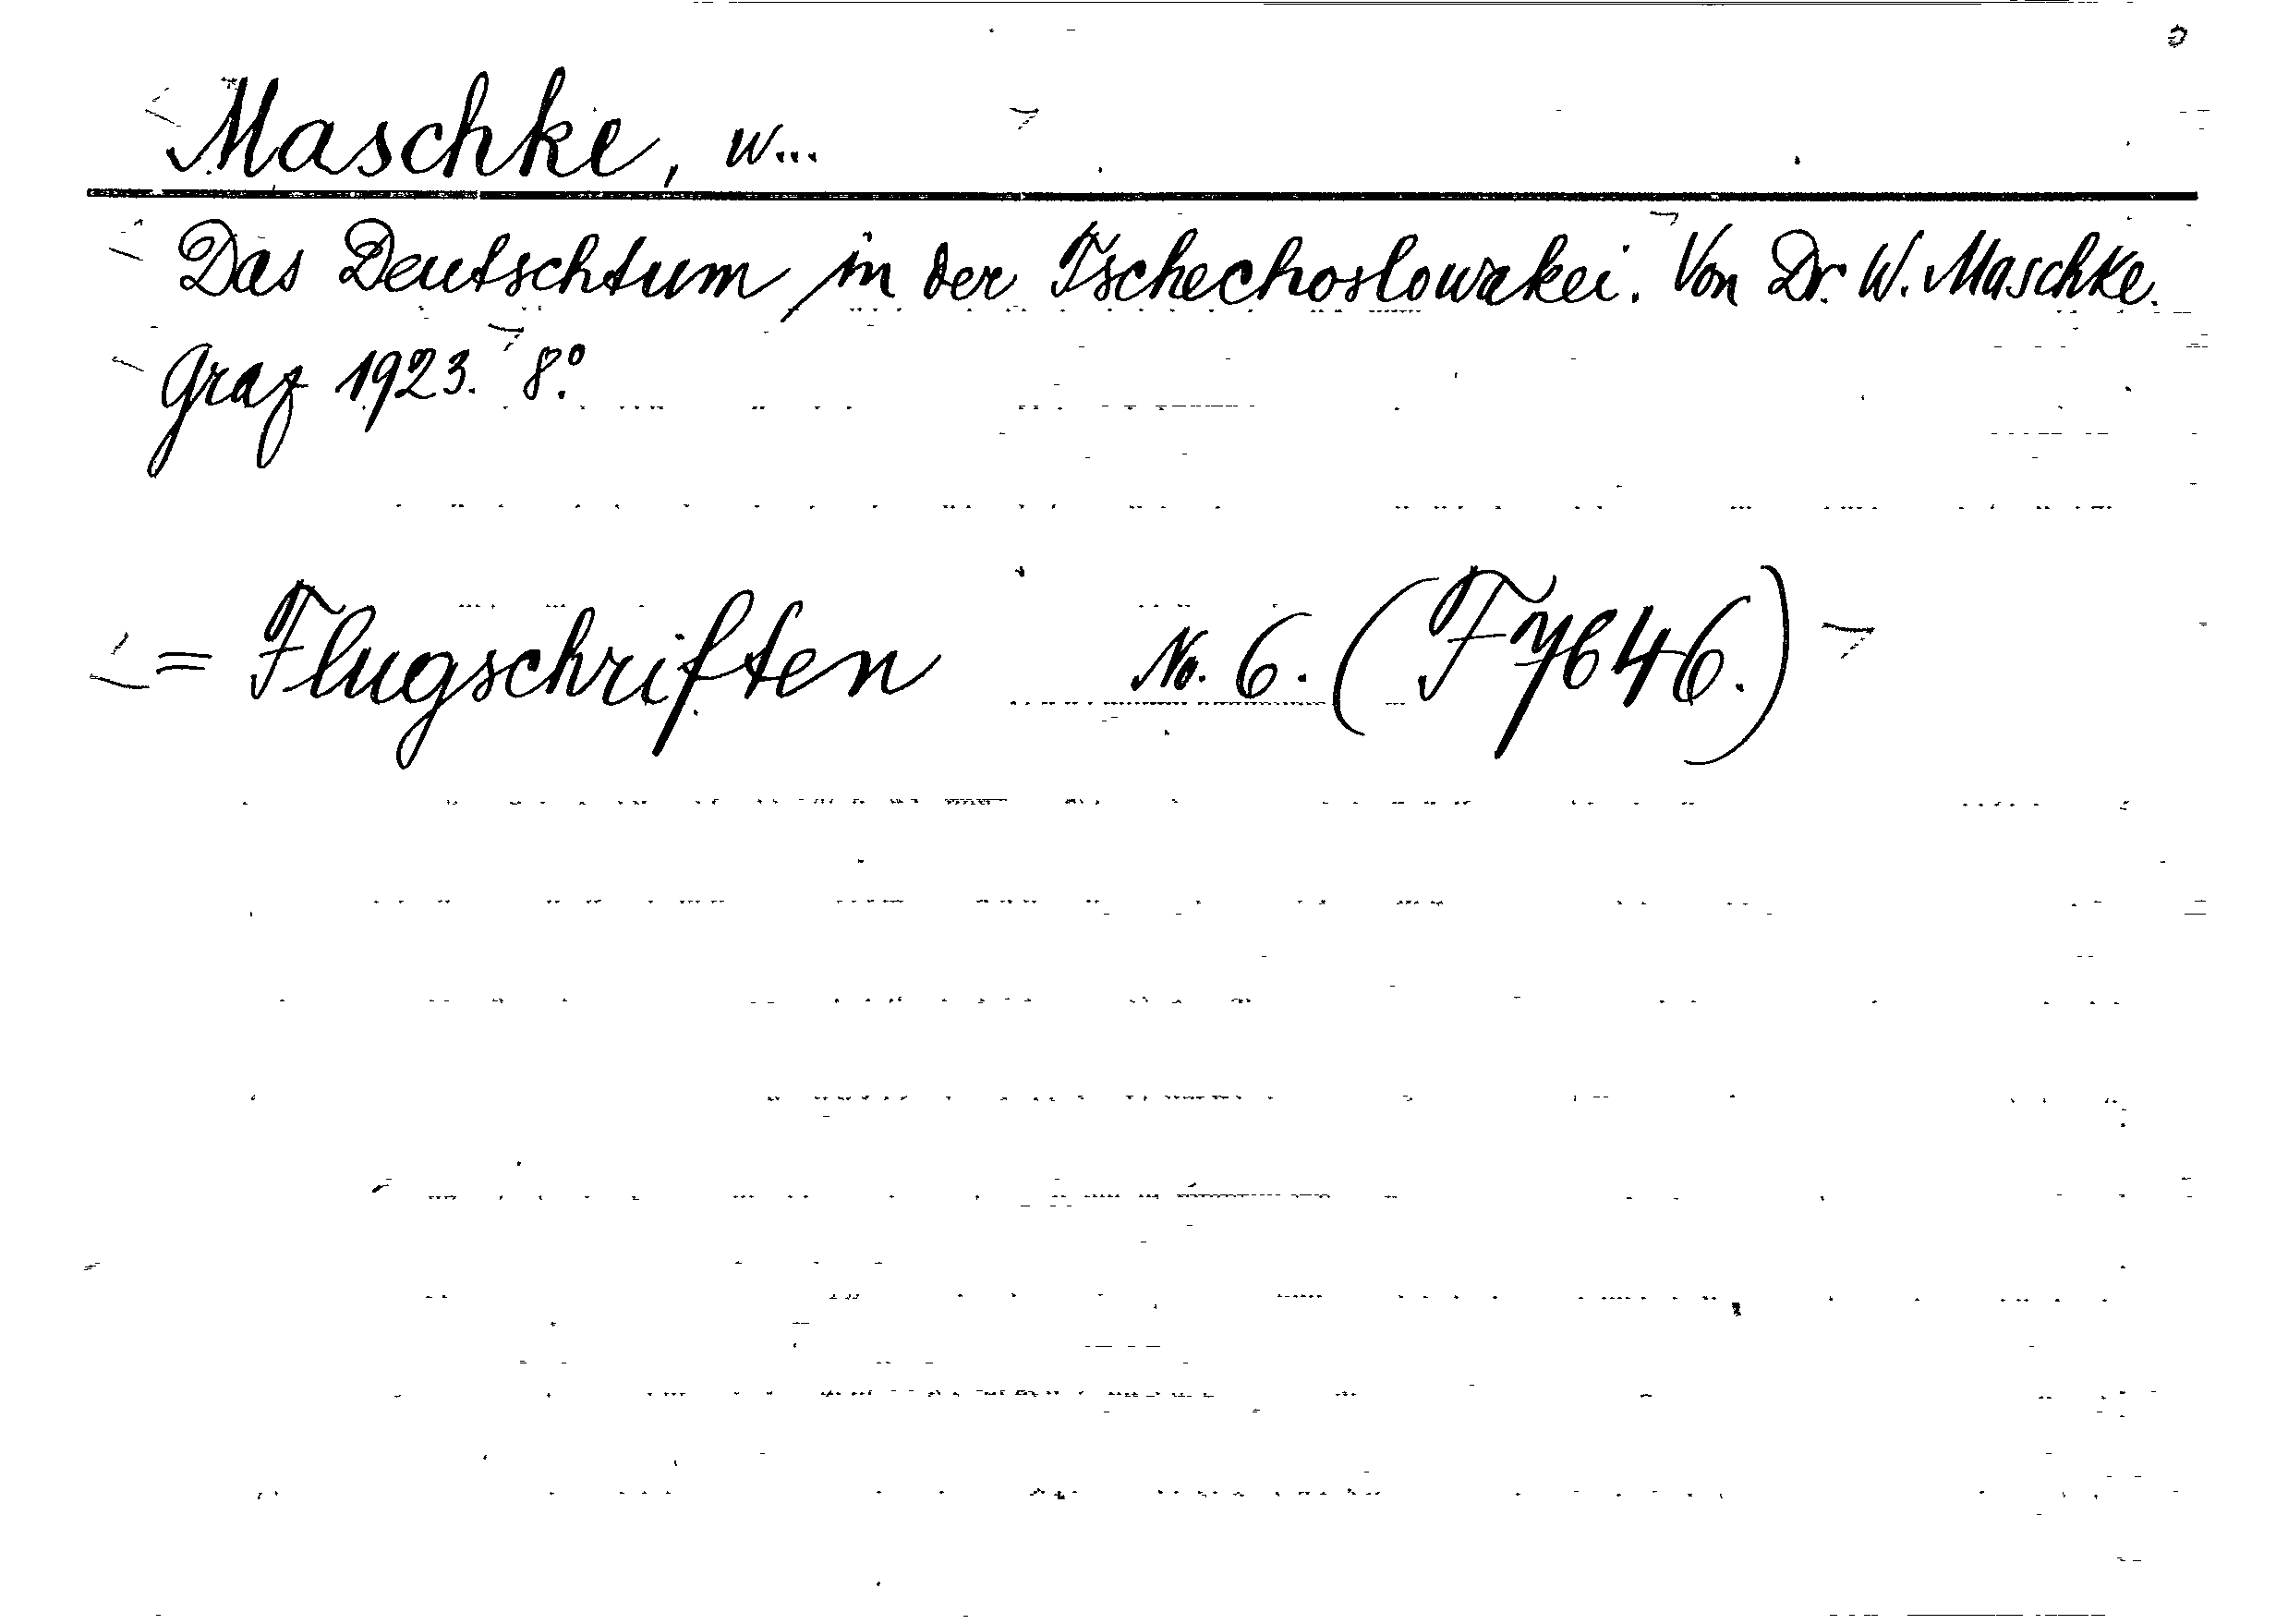 Maschke, W...
Das Deutschtum in der Tschechoslowakei. Von Dr. W. Maschke.
Graz 1923. 8°.
= Flugschriften No. 6. (F 7646.)